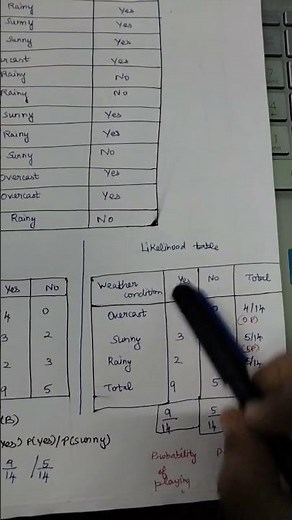 Rainy Yes
Sunny Yes
Sunny Yes
ercast Yes
Rainy No
Rainy No
Sunny Yes
Rainy Yes
Sunny No
Overcast Yes
Overcast Yes
Rainy No
Likelihood table
Yes No
4 0
3 2
2 3
9 5
Weather condition Yes No Total
Overcast 4/14
(OP)
Sunny 3 5/14
(SP)
Rainy 2 5/14
Total 9 5
9/14 5/14
(B)
Yes) P(Yes)/P(Sunny)
9/14 / 5/14
Probability
of
playing
P